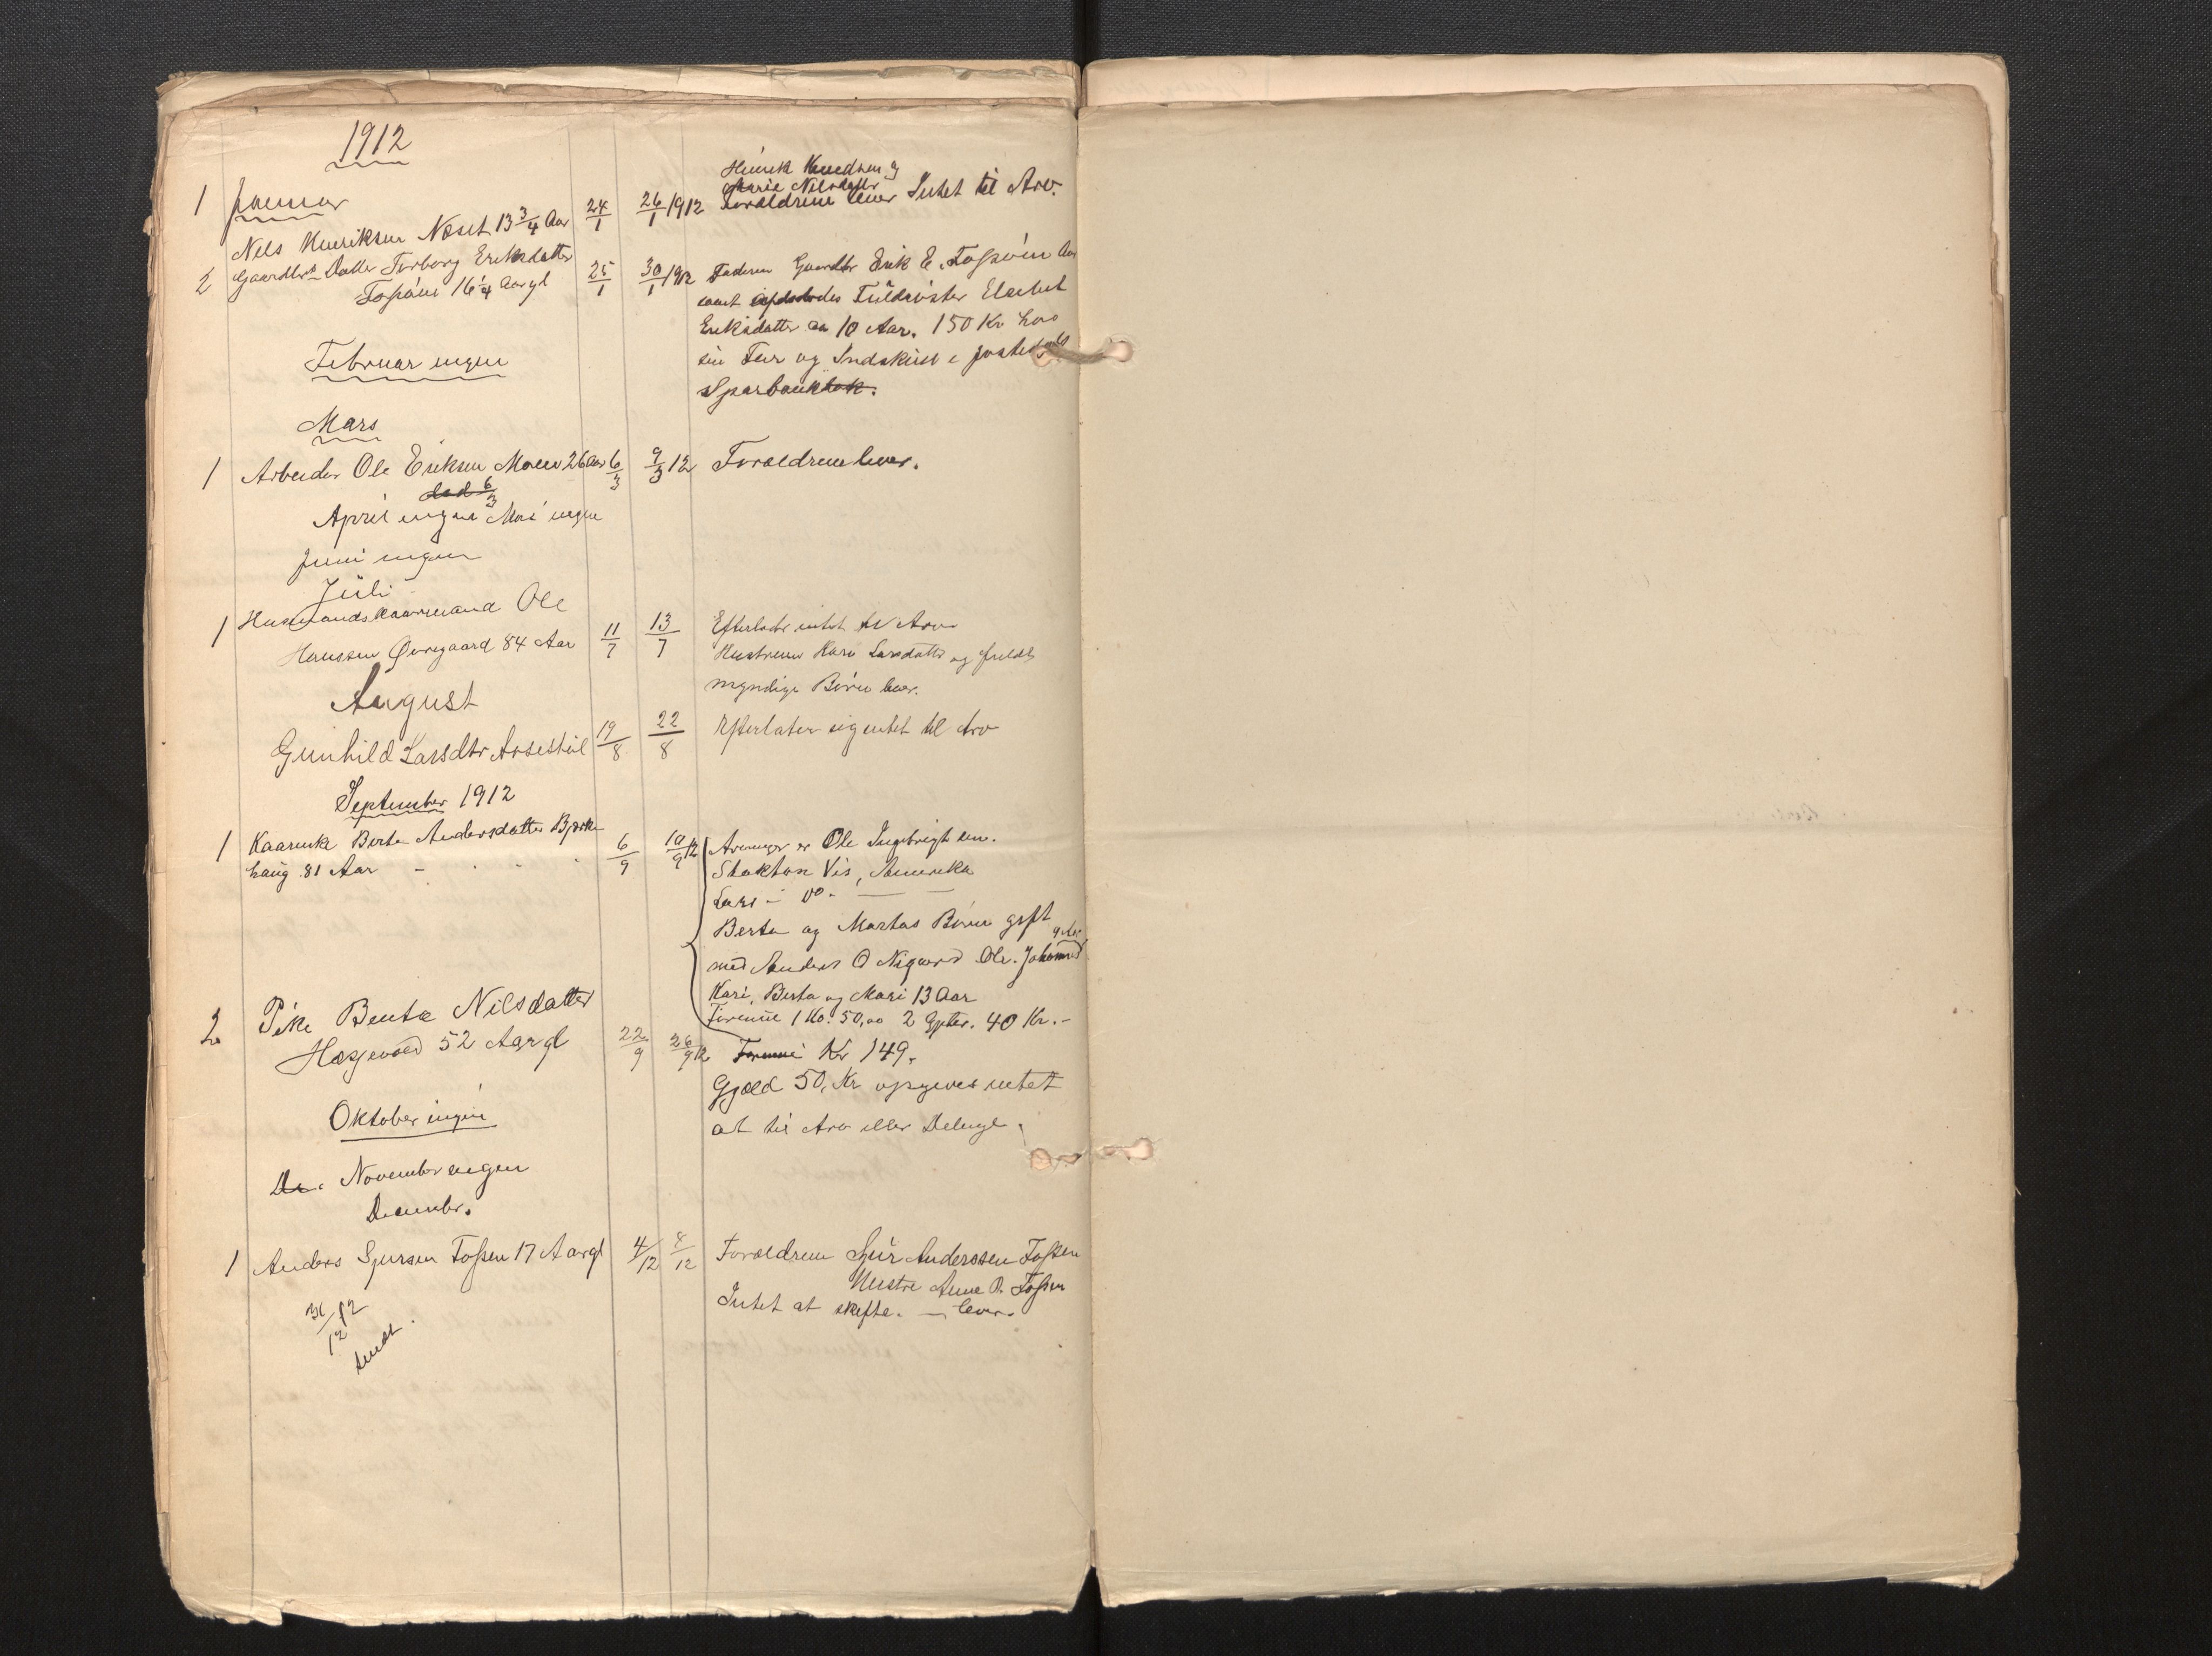 1912
1 Januar
Nils Henriksen Næset 13 3/4 Aar 24/1 26/1 1912 Henrik Knudsen og
Marie Nilsdatter
Foraldrene lever Intet til Arv.
2 Gaardbrs Datter Torborg Eriksdatter
Fossøien 16 1/4 Aar gl 25/1 30/1 1912 Faderen Gaardbr Erik E. Fossøien
samt Fuldsøster Elsebet
Eriksdatter 10 Aar. 150 Kr hos
sin Far og Indskud i Jostedals
Sparbank bok.
Februar ingen
Mars
1 Arbeider Ole Eriksen Moen 26 Aar 6/3 9/3 12 Foraeldrene lever.
død 6/3
April ingen Mai ingen
Juni ingen
Juli
1 Husmandskaarmand Ole
Hanssen Øvregaard 84 Aar 11/7 13/7 Efterlader intet til Arv
Hustruen Kari Larsdatter og fuld
myndige Børn lever.
August
Gunhild Larsdtr Aasestøl 19/8 22/8 Efterlater sig intet til Arv
September 1912
1 Kaarenke Berte Andersdatter Bjørke
haug 81 Aar 6/9 10/9 12 Arvinger er Ole Ingebrigtsen.
Stokton Vis, Amerika
Lars - do -
Berta og Martas Børn gift
med Anders O Nigaard Ole. Johannes 9 Aar
Kari, Berta og Mari 13 Aar
Formue 1 Ko. 50,00 2 Gjeter. 40 Kr. -
2 Pike Benta Nilsdatter
Hasjevoed 52 Aar gl 22/9 26/9 12 Formue Kr 149.
Gjæld 50, Kr opgives intet
at til Arv eller Delinge.
Oktober ingen
De. November ingen
December.
1 Anders Sjursen Fossen 17 Aar gl 4/12 8/12 Foraeldrene Sjur Anderssen Fossen
Hustru Anne P. Fossen
Intet at skifte. — lever.
31/12 12